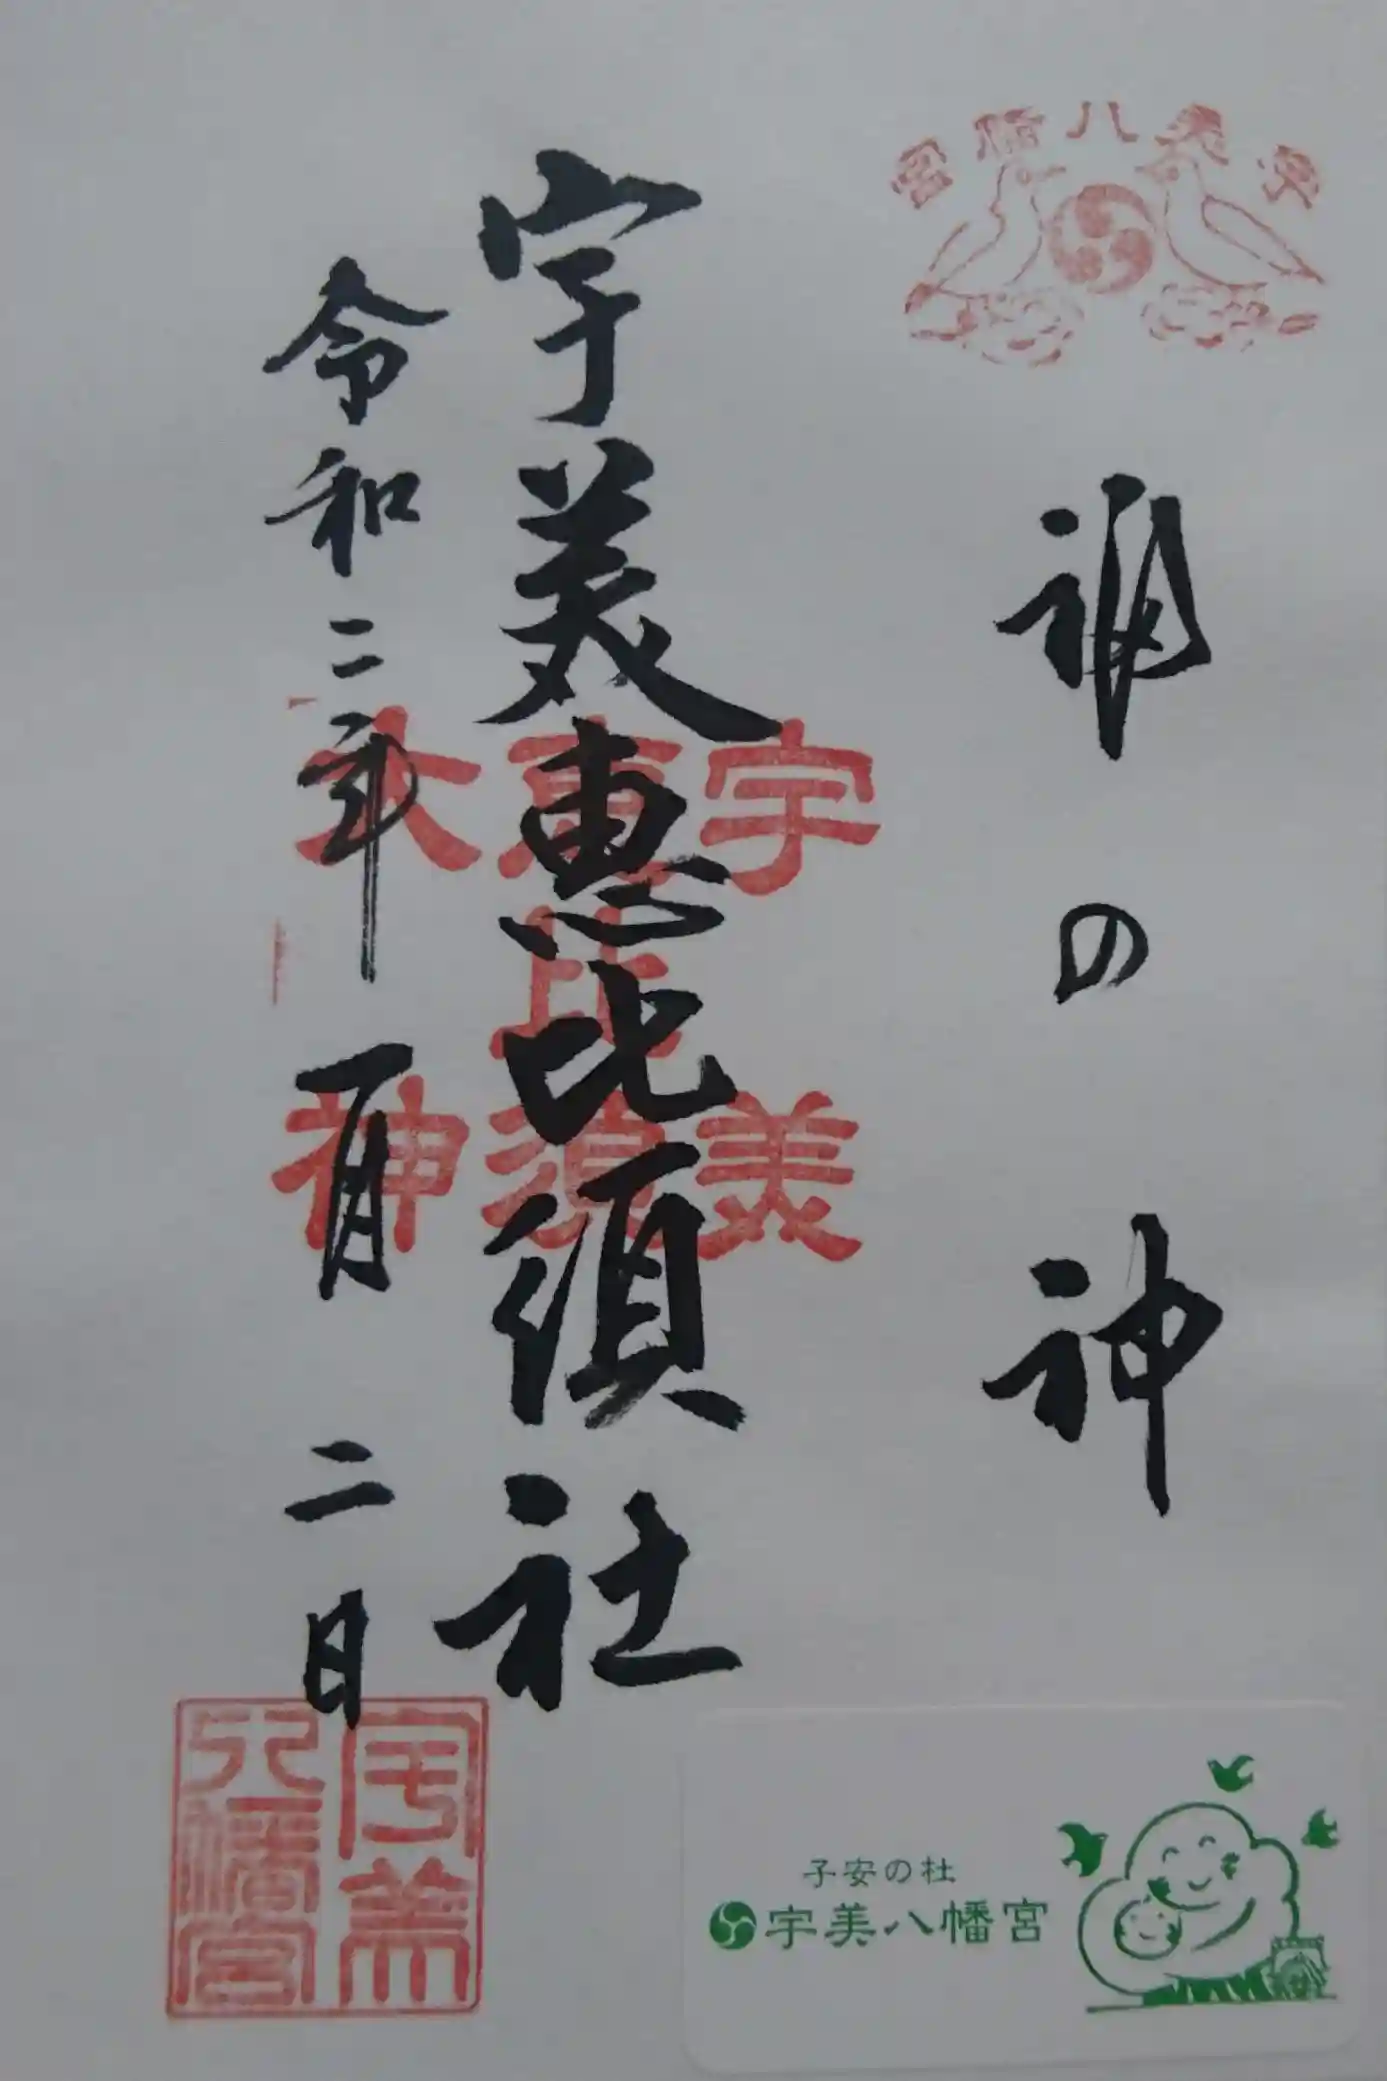 宇美八幡宮
福の神
宇美
恵比須
大神
宇美恵比須社
令和二年一月二日
宇美
八幡宮
子安の杜
宇美八幡宮